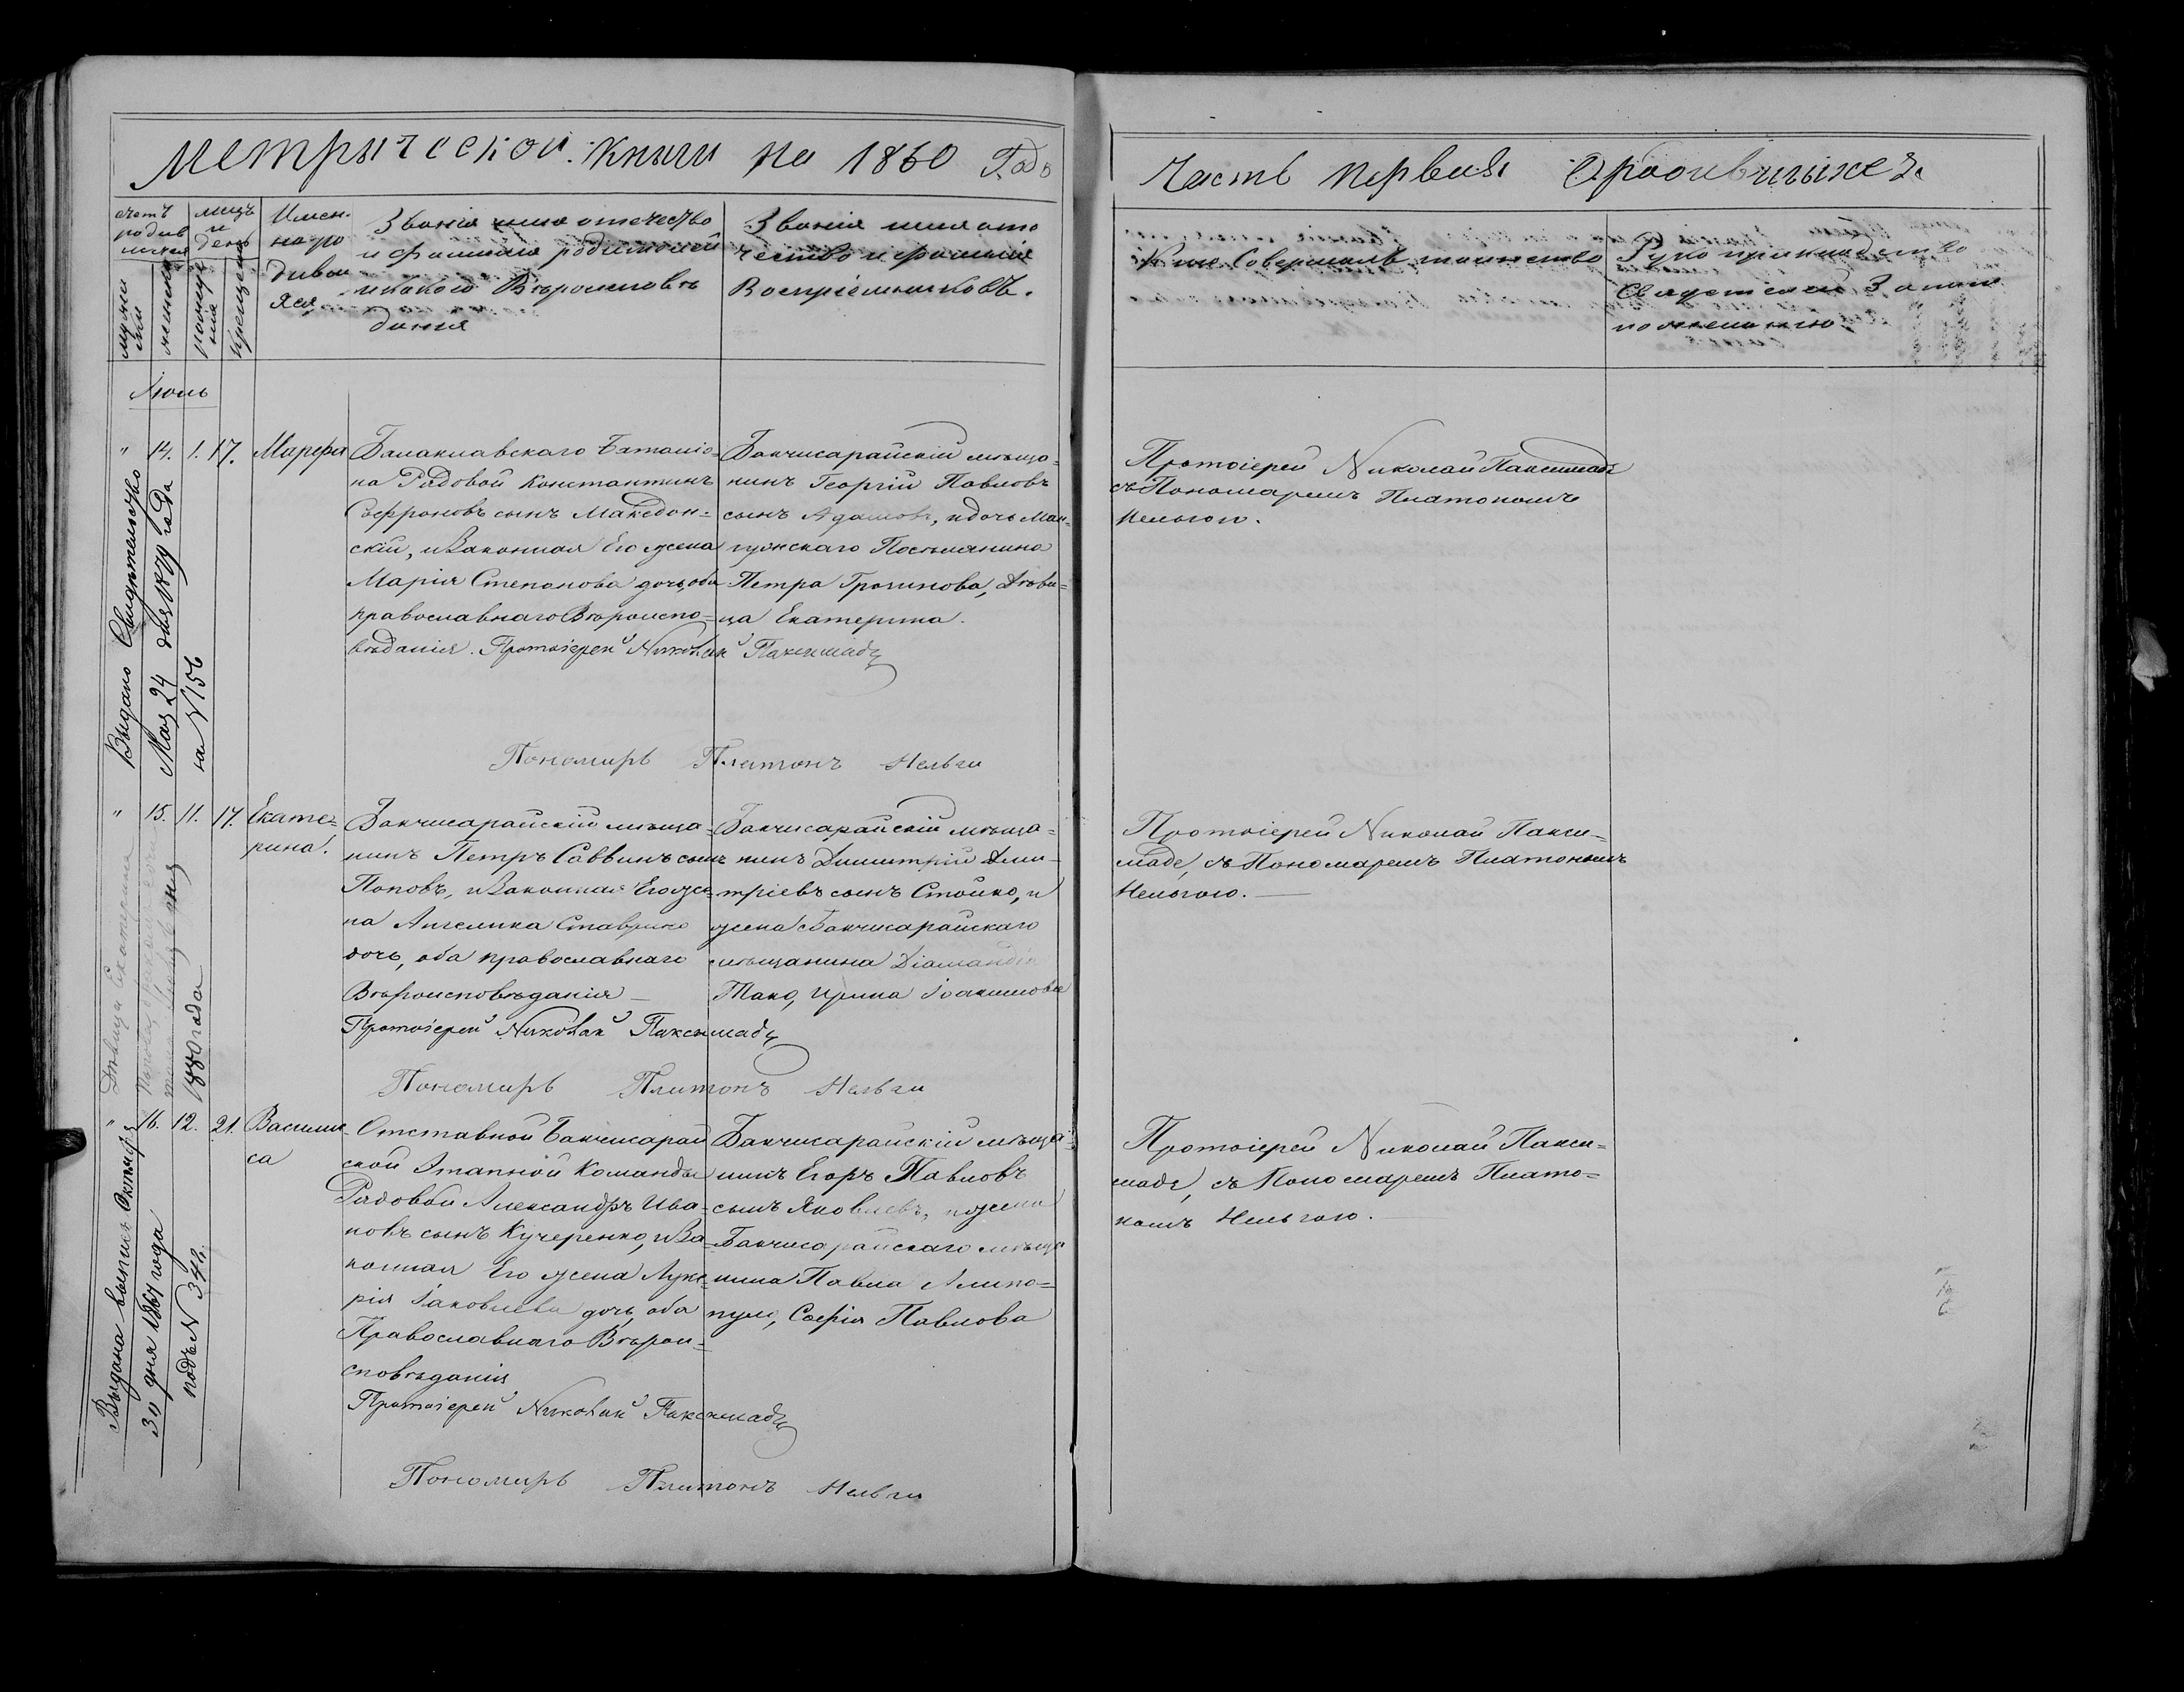 Метрической книги на 1860 Годъ
Часть первая О родившыхся
счетъ родив шихся
мужеска
женска
мцъ и день
рожде нія
крещенія
Имен. на ро дивш яся
Званія имя отечество
и фамилія родителей
и какого Вѣроисповѣ
данія
Званія имя оте
чество и фамилія
Воспріемниковъ.
Кто Совершалъ таинство
Рукоприкладство
Свидетелей Записи
по желанію
Іюль
" 14. 1. 17. Марѳа
Балаклавскаго Баталіо-
на Рядовой Константинъ
Софроновъ сынъ Македон-
скій, и Законная Его жена
Марія Степанова дочь, оба
православнаго Вѣроиспо-
вѣданія. Протоіерей Николай Паксимади
Бакчисарайскій мѣща-
нинъ Георгій Павловъ
сынъ Адамовъ, и дочь Ман-
гушскаго Поселянина
Петра Грачинова, Дѣви-
ца Екатерина.
Пономарь Платонъ Нельги
Протоіерей Николай Паксимаде
съ Пономаремъ Платономъ
Нельгою.
Выдано Свидѣтельство
Мая 24 дня 1879 года
на № 156
" 15. 11. 17. Екате-
рина.
Бакчисарайскій мѣща-
нинъ Петръ Саввинъ сынъ
Поповъ, и Законная Его же-
на Ангелика Ставрина
дочь, оба православнаго
Вѣроисповѣданія
Протоіерей Николай Паксимади
Бакчисарайскій мѣща-
нинъ Димитрій Дми-
тріевъ сынъ Стойко, и
жена Бакчисарайскаго
мѣщанина Діаманди
Тако, Ирина Іоакимова
Пономарь Платонъ Нельги
Протоіерей Николай Пакси-
маде, съ Пономаремъ Платономъ
Нельгою.
Дѣвица Екатерина
1880 года
" 16. 12. 21. Васили-
са
Отставной Бакчисарай
ской Этапной Команды
Рядовой Александръ Ива-
новъ сынъ Кучеренко, и За-
конная Его жена Луке-
рія Іаковлева дочь, оба
Православнаго Вѣрои-
сповѣданія
Протоіерей Николай Паксимади
Бакчисарайскій мѣща-
нинъ Егоръ Павловъ
сынъ Яковлевъ, и жена
Бакчисарайскаго мѣща
нина Павла Алипо-
пуло, Софія Павлова
Пономарь Платонъ Нельги
Протоіерей Николай Пакси-
маде, съ Пономаремъ Плато-
номъ Нельгою.
Выдана выпись Октября
30 дня 1867 года
подъ № 348.